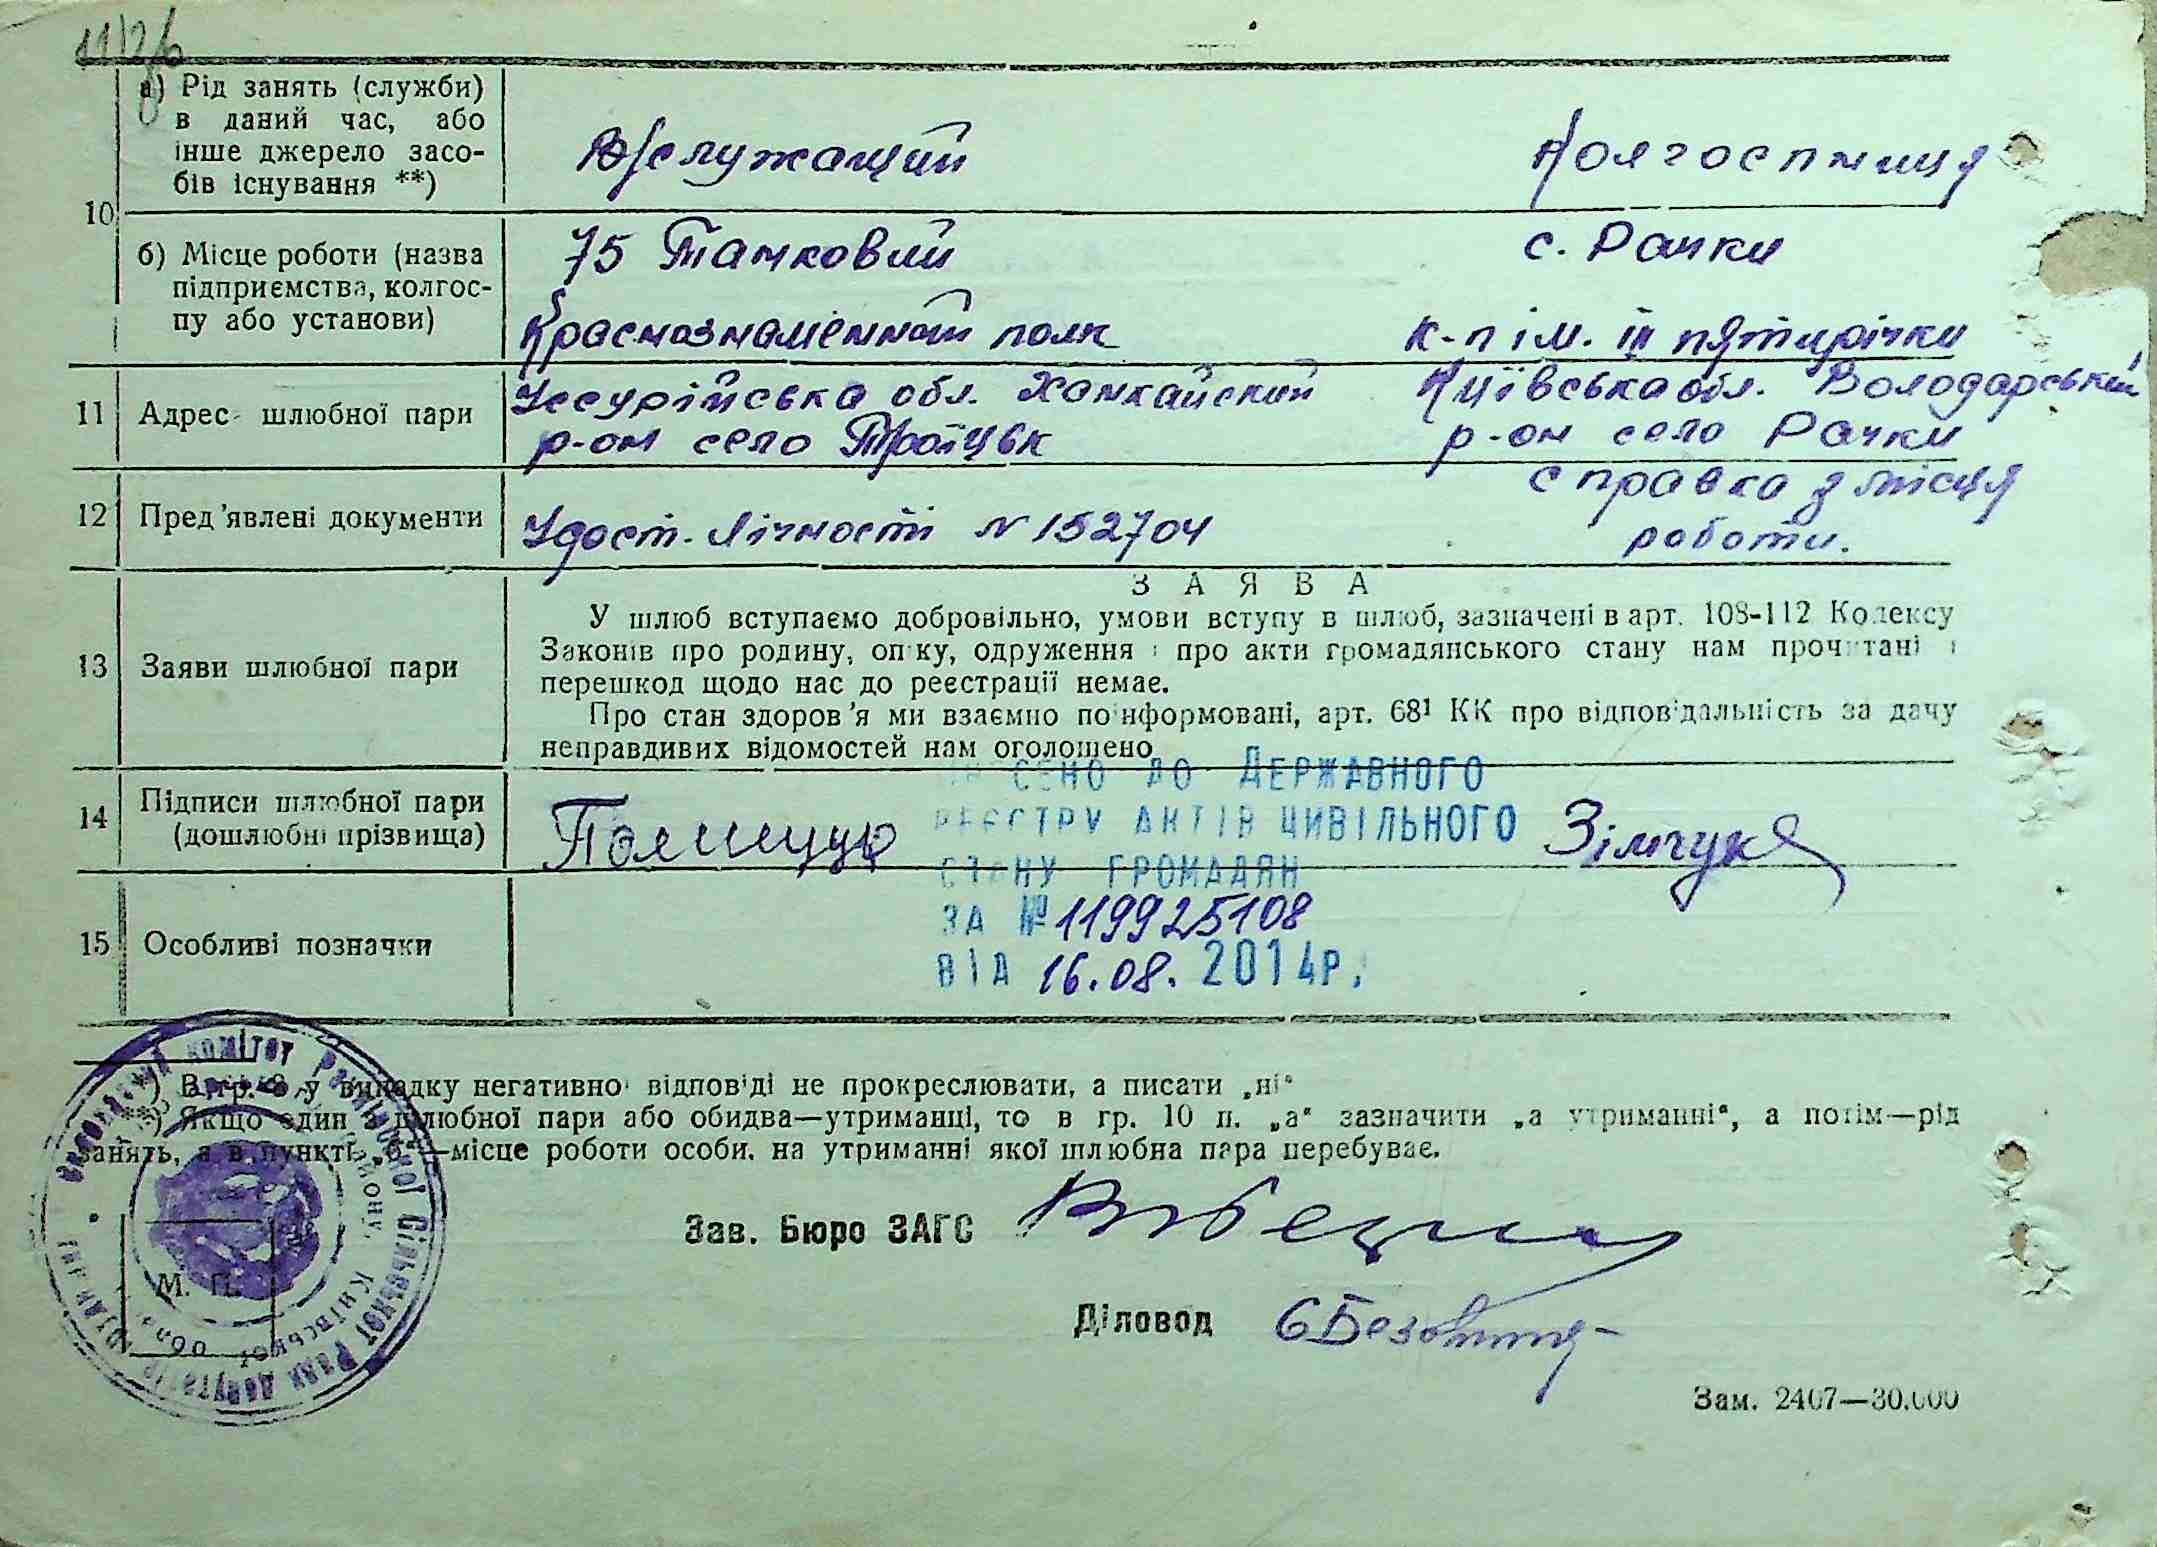 а) Рід занять (служби)
в даний час, або
інше джерело засо-
бів існування **)
В/служащий
Колгоспниця
10
б) Місце роботи (назва
підприємства, колгос-
пу або установи)
75 Танковий
Краснознаменний полк
с. Рачки
к-п ім. ІІІ пятирічки
11
Адрес шлюбної пари
Уссурійська обл. Ханкайский
р-он село Троїцьк
Київська обл. Володарський
р-он село Рачки
12
Пред'явлені документи
Удост. Лічності № 152704
справка з місця
роботи.
13
Заяви шлюбної пари
ЗАЯВА
У шлюб вступаємо добровільно, умови вступу в шлюб, зазначені в арт. 108-112 Кодексу
Законів про родину, опіку, одруження і про акти громадянського стану нам прочитані і
перешкод щодо нас до реєстрації немає.
Про стан здоров'я ми взаємно поінформовані, арт. 68¹ КК про відповідальність за дачу
неправдивих відомостей нам оголошено
14
Підписи шлюбної пари
(дошлюбні прізвища)
Зімчук
15
Особливі позначки
ВНЕСЕНО ДО ДЕРЖАВНОГО
РЕЄСТРУ АКТІВ ЦИВІЛЬНОГО
СТАНУ ГРОМАДЯН
ЗА № 119925108
ВІД 16.08. 2014р.
*) В гр. 8 у випадку негативної відповіді не прокреслювати, а писати „ні"
**) Якщо один з шлюбної пари або обидва—утриманці, то в гр. 10 п. „а" зазначити „а утриманні", а потім—рід
занять, а в пункті „б"—місце роботи особи, на утриманні якої шлюбна пара перебуває.
М. П.
Зав. Бюро ЗАГС
Діловод
Зам. 2407—30.000